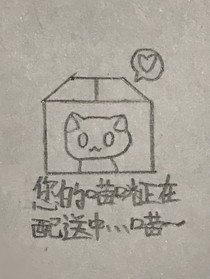 您的喵咪正在
配送中...喵~